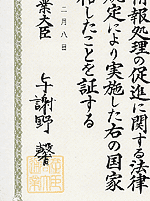 情報処理の促進に関する法律
規定により実施した右の国家
格したことを証する
二月八日
業大臣
与謝野馨